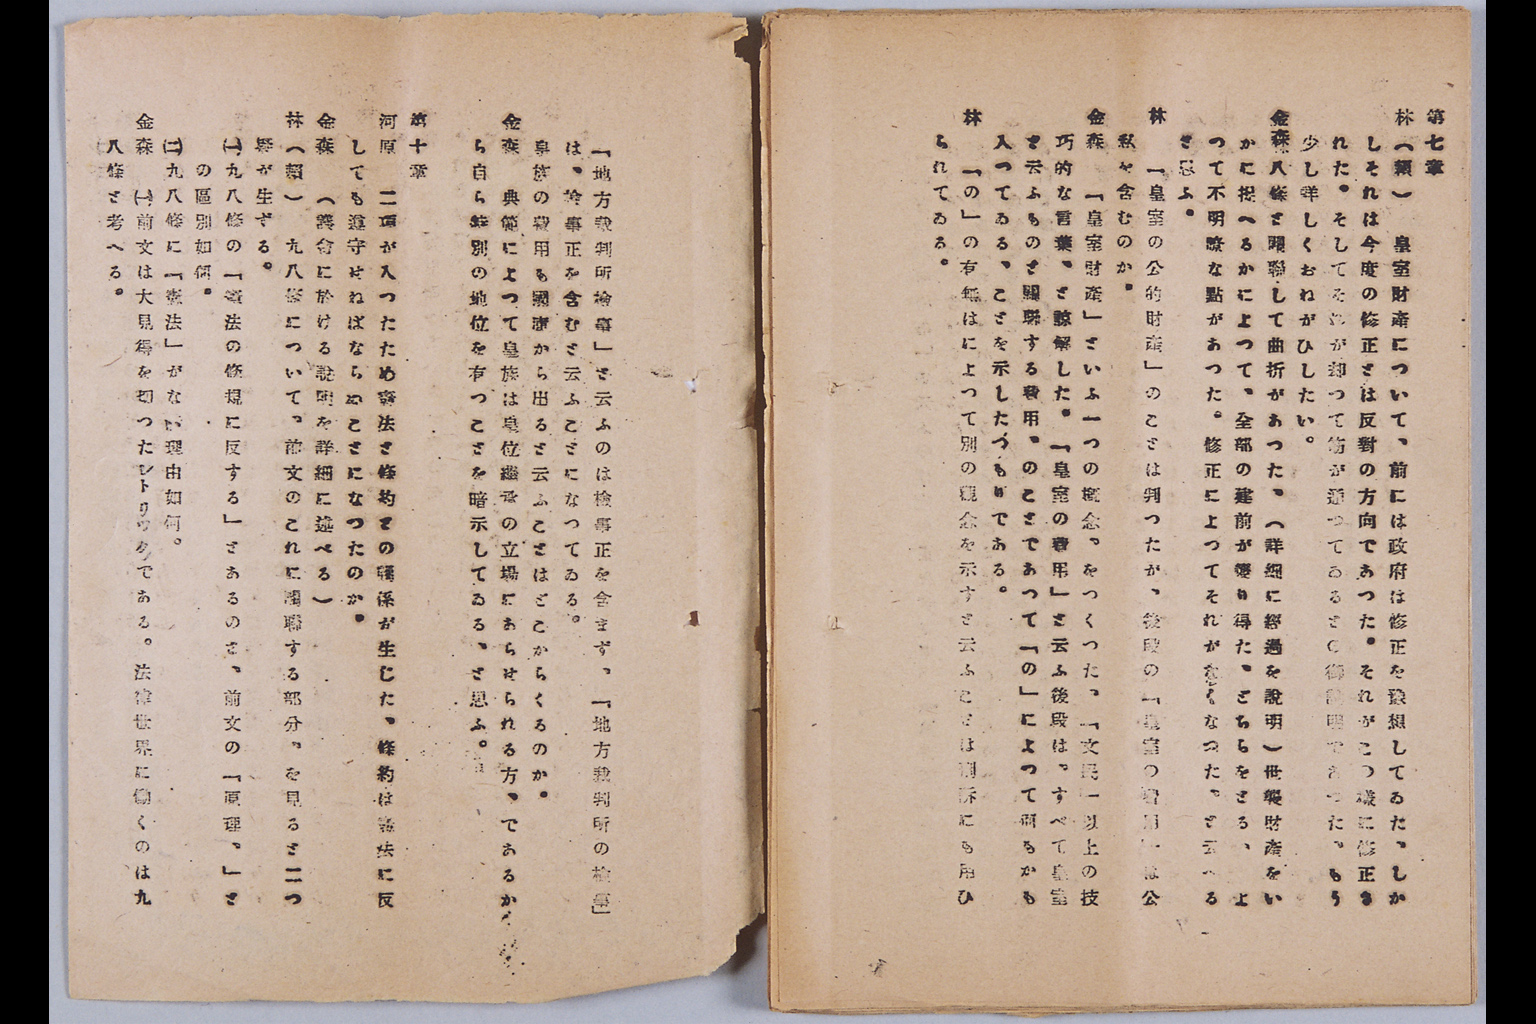 第七章
林(頼) 皇室財產について、前には政府は修正を豫想してゐた、しか
しそれは今度の修正とは反對の方向であつた。それがこの樣に修正さ
れた。そしてそれが却つて筋が通つてゐるとの御說明であつた、もう
少し詳しくおねがひしたい。
金森 八條と關聯して曲折があつた、(詳細に經過を說明)世襲財產をい
かに捉へるかによつて、全部の建前が變り得た、どちらをとる、よ
つて不明瞭な點があつた。修正によつてそれがなくなつた、と云へる
と思ふ。
林 「皇室の公的財產」のことは判つたが、後段の「皇室の費用」は公
私を含むのか。
金森 「皇室財產」といふ一つの槪念、をつくつた、「文民」以上の技
巧的な言葉、と諒解した。「皇室の費用」と云ふ後段は、すべて皇室
と云ふものと關聯する費用、のことであつて「の」によつて何もかも
入つてゐる、ことを示したつもりである。
林 「の」の有無はによつて別の觀念を示すと云ふことは訴にも用ひ
られてゐる。
「地方裁判所檢事」と云ふのは檢事正を含まず、「地方裁判所の檢事」
は、檢事正を含むと云ふことになつてゐる。
皇族の費用も國庫から出ると云ふことはどこからくるのか。
金森 典範によつて皇族は皇位繼承の立場にあらせられる方、であるか
ら自ら特別の地位を有つことを暗示してゐる、と思ふ。
第十章
河原 二項が入つたため憲法と條約との關係が生じた、條約は憲法に反
しても遵守せねばならぬことになつたのか。
金森 (議會に於ける說明を詳細に述べる)
林(頼) 九八條について、前文のこれに關聯する部分、を見ると二つ
疑が生ずる。
㈠九八條の「憲法の條規に反する」とあるのと、前文の「原理、」と
の區別如何。
㈡九八條に「憲法」がない理由如何。
金森 ㈠前文は大見得を切つたレトリックである。法律世界に働くのは九
八條と考へる。